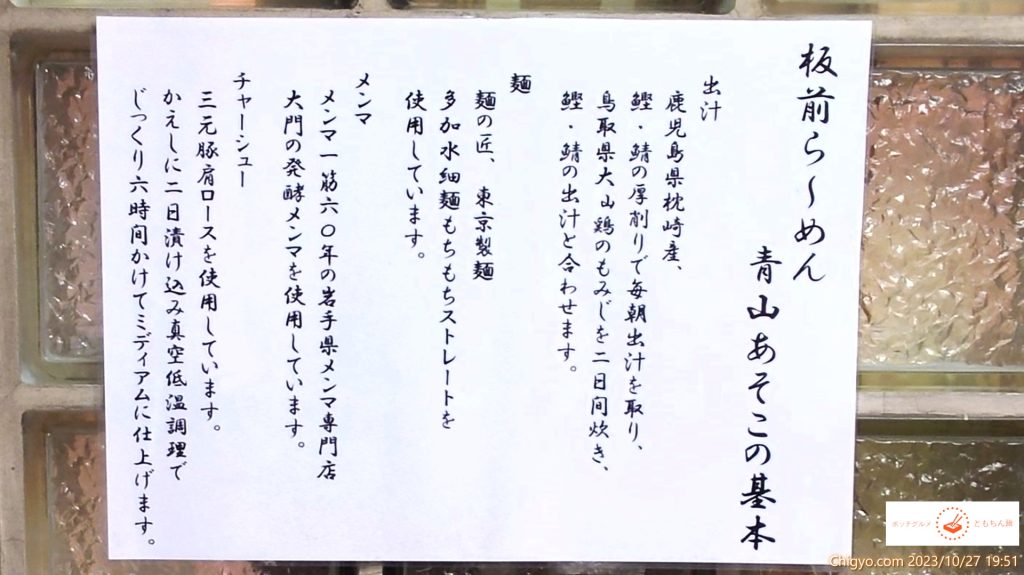 板前ら〜めん
青山あそこの基本
出汁
鹿児島県枕崎産、
鰹・鯖の厚削りで毎朝出汁を取り、
鳥取県大山鶏のもみじを二日間炊き、
鰹・鯖の出汁と合わせます。
麺
麺の匠、東京製麺
多加水細麺もちもちストレートを
使用しています。
メンマ
メンマ一筋六〇年の岩手県メンマ専門店
大門の発酵メンマを使用しています。
チャーシュー
三元豚肩ロースを使用しています。
かえしに二日漬け込み真空低温調理で
じっくり六時間かけてミディアムに仕上げます。
ボッチグルメ ともちん旅
Chigyo.com 2023/10/27 19:51